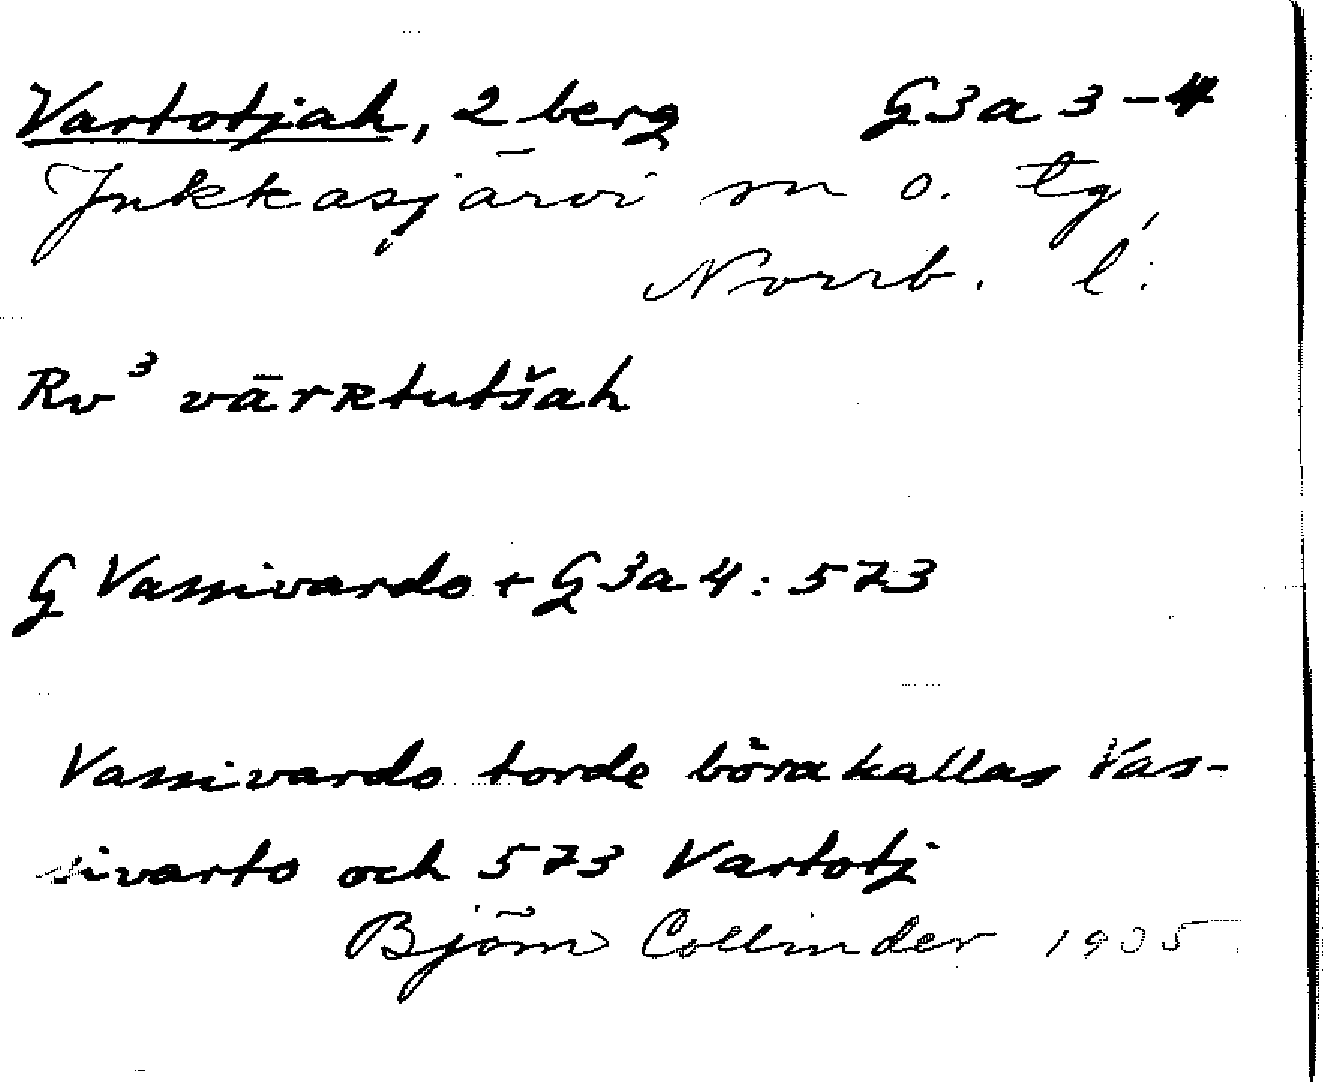 Vartotjah, 2 berg G3a 3-4
Jukkasjärvi sn o. tg,
Norrb. l.
Rv³ vārʀtutšah
G Vassivardo + G3a4: 573
Vassivardo torde böra kallas Vas-
sivarto och 573 Vartotj
Björn Collinder 1935